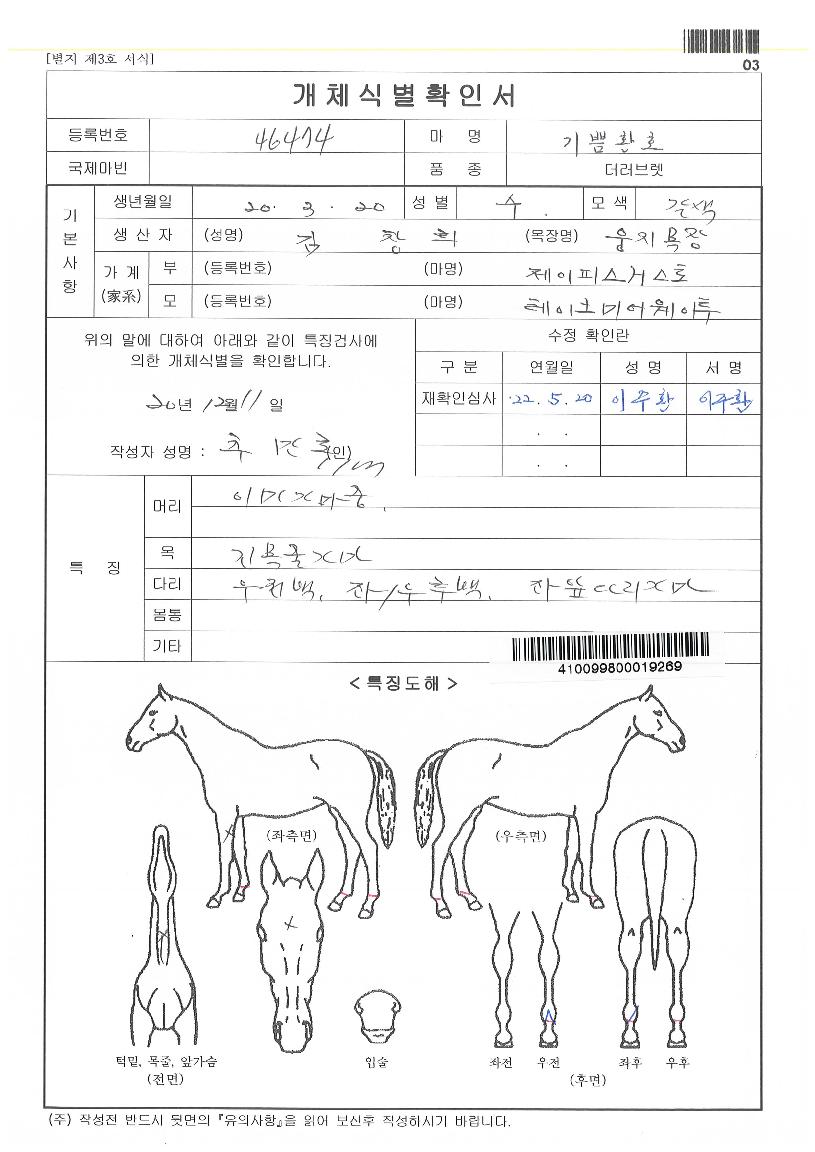 [별지 제3호 서식]
03
개체식별확인서
등록번호 46474 마 명 기쁨환호
국제마빈 품 종 더러브렛
기본사항
생년월일 20. 3. 20 성 별 수 모 색 갈색
생 산 자 (성명) 김창희 (목장명) 웅지목장
가 계 (家系) 부 (등록번호) (마명) 제이피스거스토
모 (등록번호) (마명) 테이크미어웨이투
위의 말에 대하여 아래와 같이 특징검사에
의한 개체식별을 확인합니다.
20년 12월 11일
작성자 성명 : (인)
수정 확인란
구 분 연월일 성 명 서 명
재확인심사 22. 5. 20 이주환 이주환
특 징
머리 이마X마중
목 기목줄X마
다리 우전백, 좌/우후백, 좌앞다리X마
몸통
기타
410099800019269
< 특징도해 >
(좌측면) (우측면)
턱밑, 목줄, 앞가슴
(전면)
입술
좌전 우전 좌후 우후
(후면)
(주) 작성전 반드시 뒷면의 『유의사항』을 읽어 보신후 작성하시기 바랍니다.